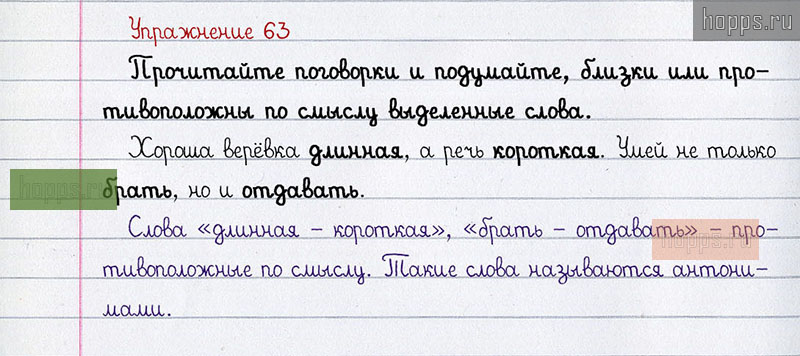 hopps.ru
Упражнение 63
Прочитайте поговорки и подумайте, близки или про-
тивоположны по смыслу выделенные слова.
Хороша верёвка длинная, а речь короткая. Умей не только
hopps.ru
брать, но и отдавать.
Слова «длинная – короткая», «брать – отдавать» – про-
hopps.ru
тивоположные по смыслу. Такие слова называются антони-
мами.